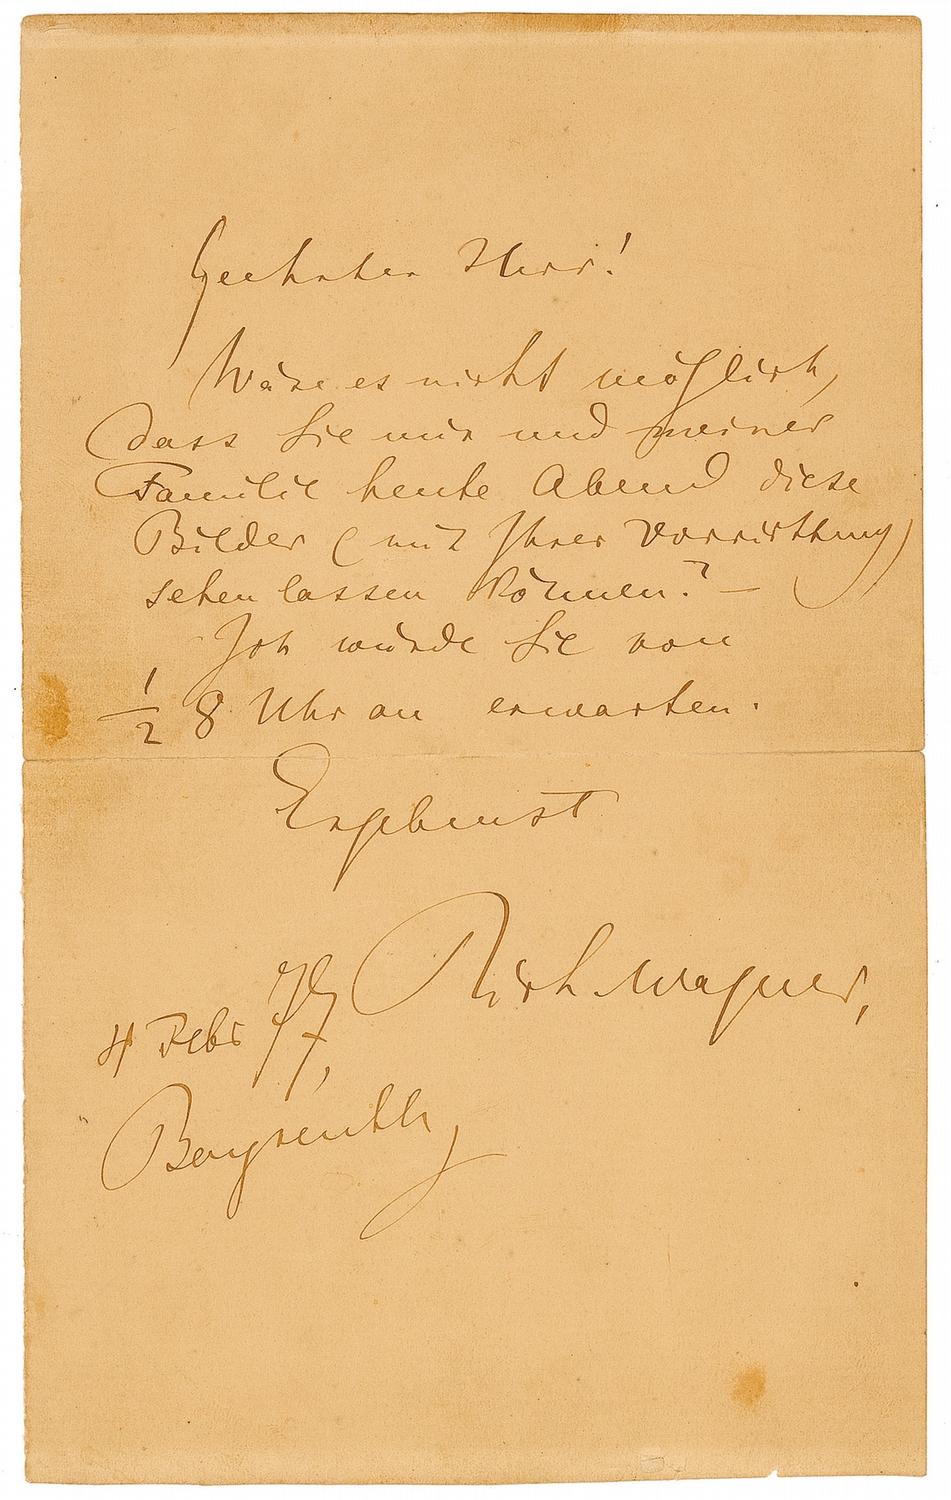 Geehrter Herr!
Wäre es nicht möglich,
dass Sie mir und meiner
Familie heute Abend diese
Bilder (mit Ihrer Vorrichtung)
sehen lassen können? —
Ich würde Sie von
1/2 8 Uhr an erwarten.
Ergebenst
Rich. Wagner,
4 Febr 77,
Bayreuth